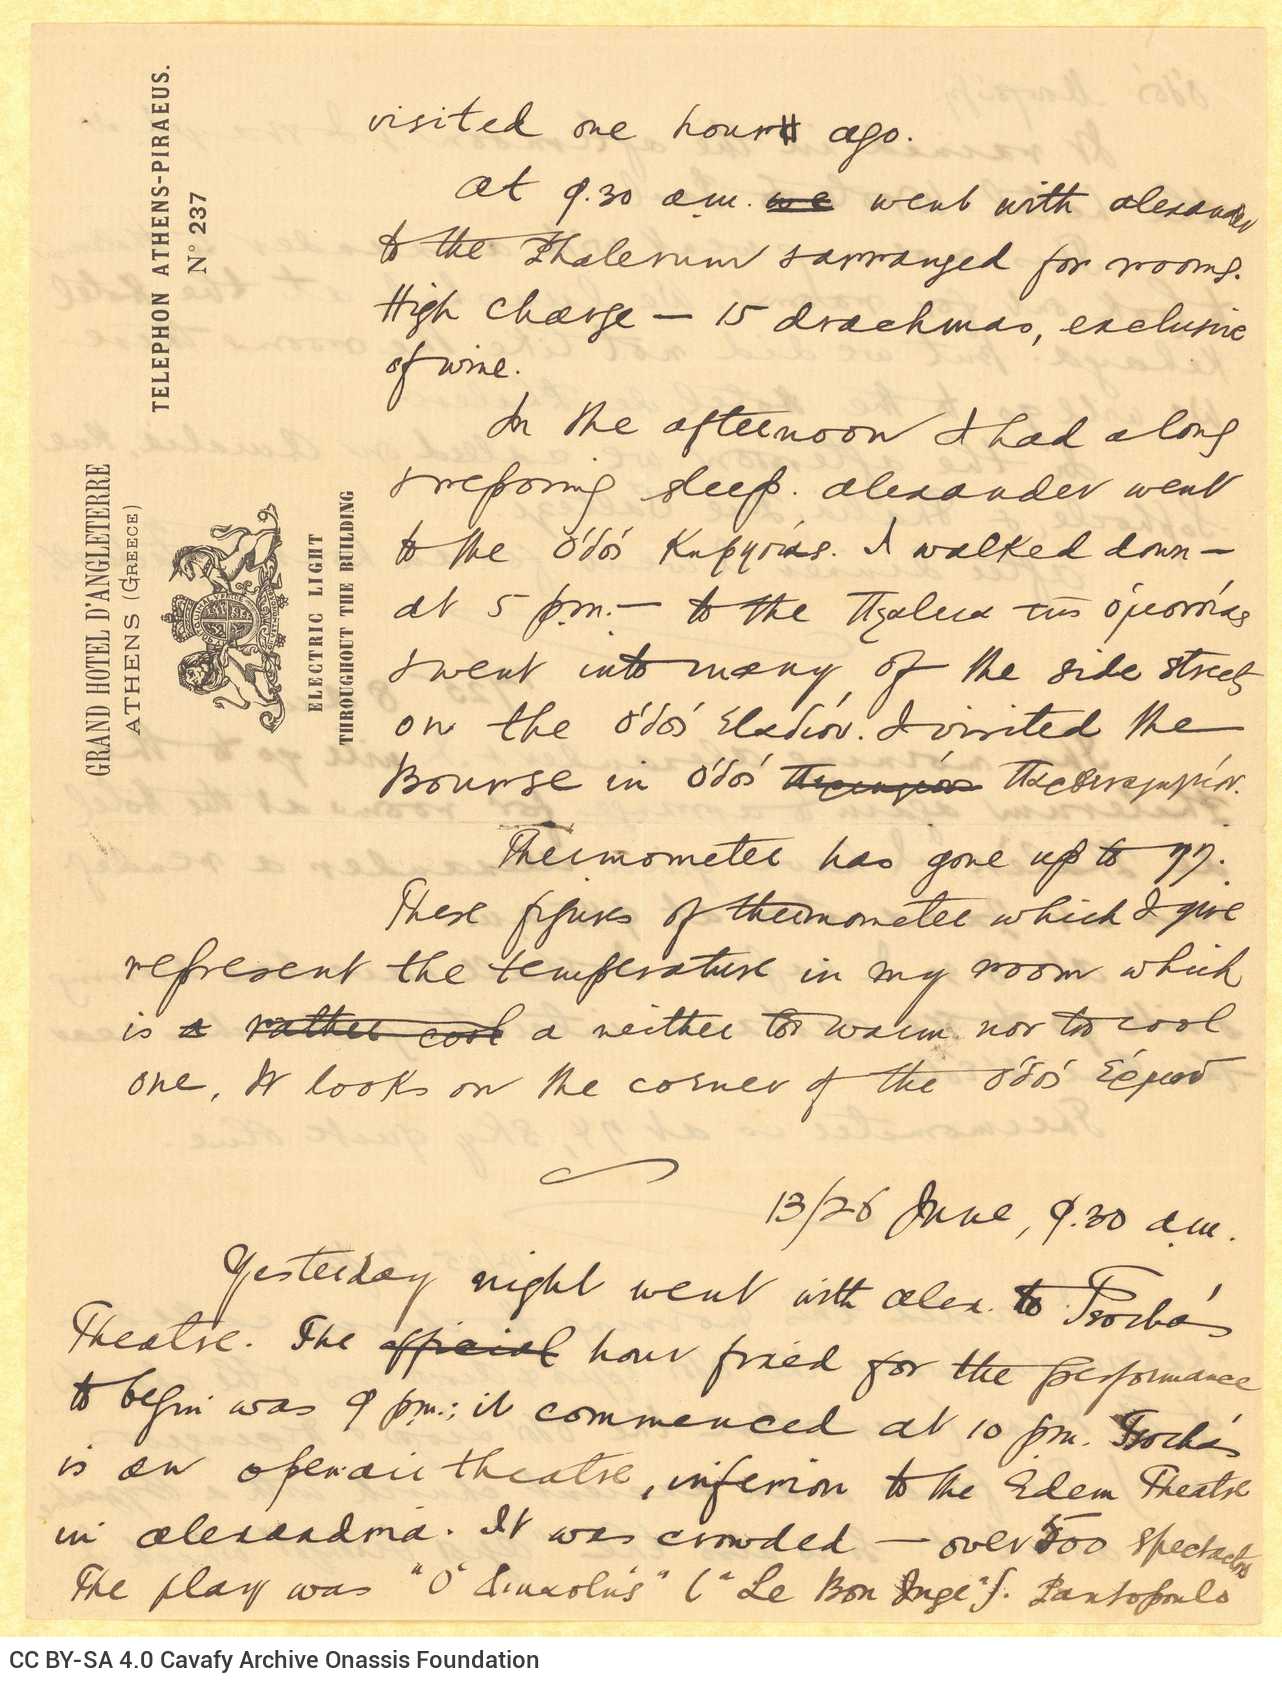 TELEPHON ATHENS-PIRAEUS.
N° 237
GRAND HOTEL D'ANGLETERRE
ATHENS (GREECE)
ELECTRIC LIGHT
THROUGHOUT THE BUILDING
visited one hour ago.
At 9.30 a.m. we went with Alexander
to the Phalerum & arranged for rooms.
High charge — 15 drachmas, exclusive
of wine.
In the afternoon I had a long
& reposing sleep. Alexander went
to the ὁδός Κηφησιάς. I walked down —
at 5 p.m. — to the Πλατεία της ὁμονοίας
& went into many of the side streets
on the ὁδός Σταδίου. I visited the
Bourse in ὁδός Παρθεναγωγείου.
Thermometer has gone up to 77.
These figures of thermometer which I give
represent the temperature in my room which
is a rather cool a neither too warm nor too cool
one. It looks on the corner of the ὁδός Ἑρμοῦ
13/26 June, 9.30 a.m.
Yesterday night went with Alex. to Tsocha's
Theatre. The official hour fixed for the performance
to begin was 9 p.m.; it commenced at 10 p.m. Tsocha's
is an open air theatre, inferior to the Edem Theatre
in Alexandria. It was crowded — over 500 spectators
The play was "Ὁ" ("Le Bon Ange"). Pantopoulo
CC BY-SA 4.0 Cavafy Archive Onassis Foundation